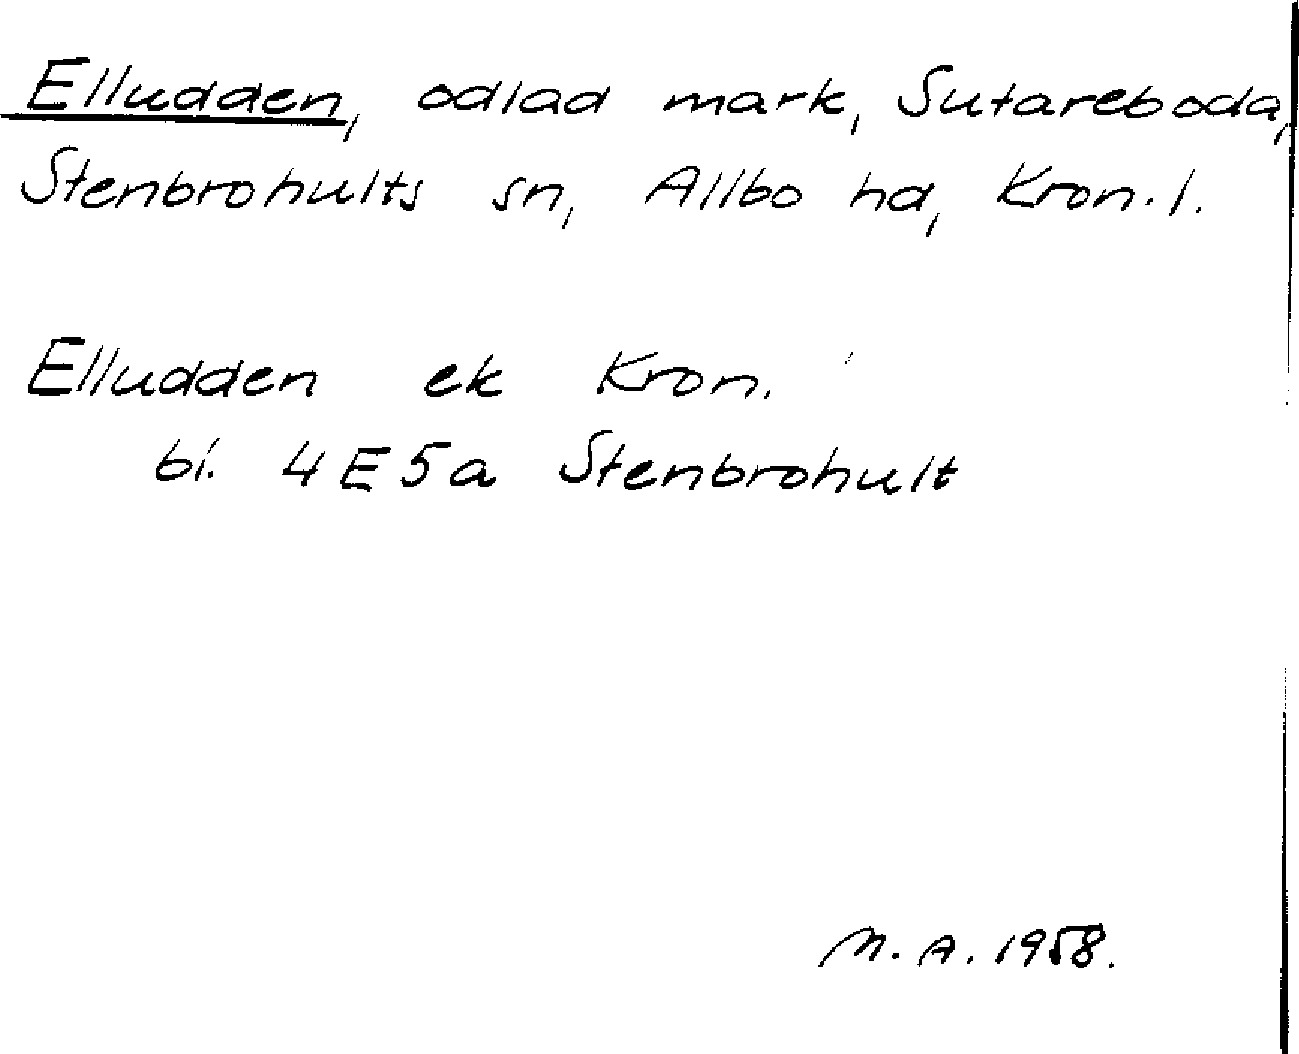 Elludden, odlad mark, Sutareboda,
Stenbrohults sn, Allbo hd, Kron.l.
Elludden ek Kron.
bl. 4E5a Stenbrohult
M.A. 1958.